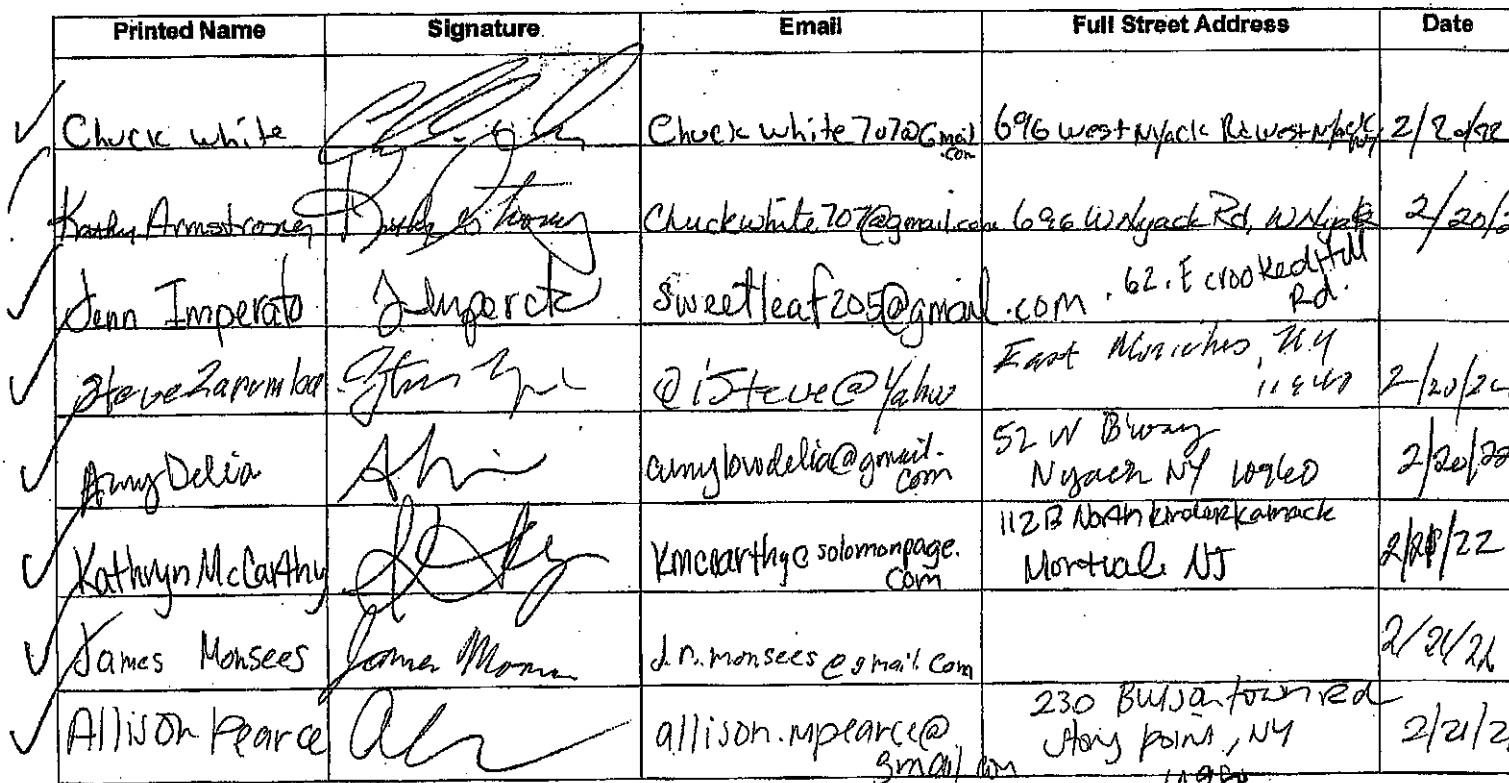 Printed Name Signature Email Full Street Address Date
Chuck White Chuckwhite707@Gmail.com 696 West Nyack Rd West Nyack NY 2/20/22
Kathy Armstrong Chuckwhite707@gmail.com 696 W Nyack Rd, W Nyack 2/20/2
Jenn Imperato J Imperato sweetleaf205@gmail.com 62. E crooked Hill Rd.
Steve @iSteve@Yahoo East Moriches, NY 11940 2/20/22
Amy Delia @gmail.com 52 W Bway Nyack NY 10960 2/20/22
Kathryn McCarthy kmccarthy@solomonpage.com 112B North Kinderkamack Montvale NJ 2/21/22
James Monsees James d.n.monsees@gmail.com 2/21/22
Allison Pearce allison.mpearce@gmail.com 230 Rd Stony point, NY 2/21/2